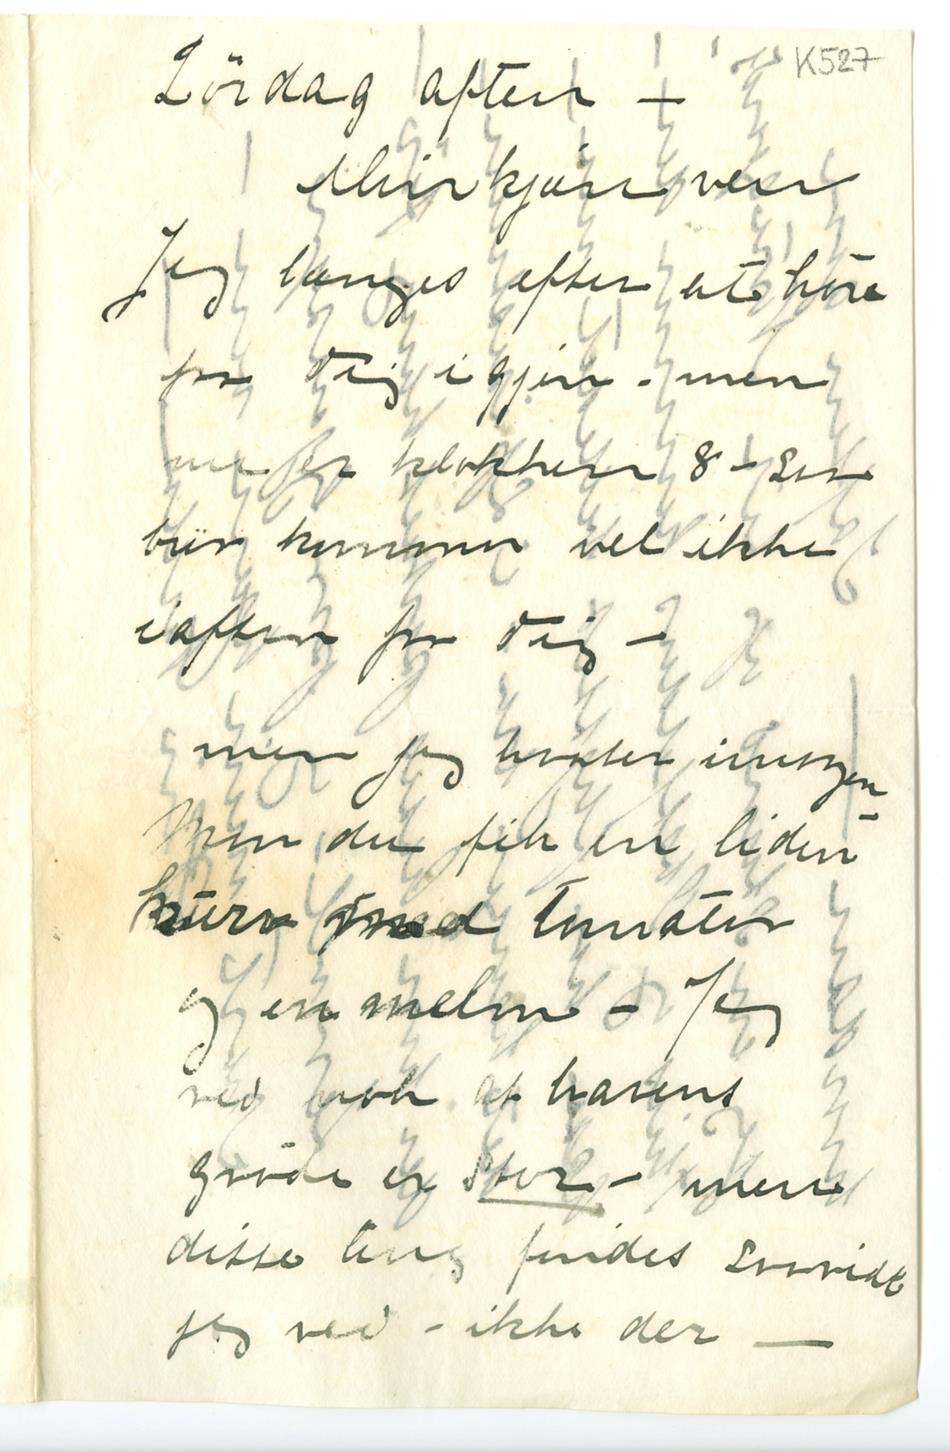 K527
Lördag aften —
Min kjære ven
Jeg længes efter at höre
fra dig igjen - men
nu er klokken 8 -
bur kommer vel ikke
iaften fra dig —
men jeg venter imorgen
Men du fik en liden
kurv med tomater
og en melon — Jeg
ved nok at havens
gröde er stor - men
disse ting findes saavidt
jeg ved - ikke der —